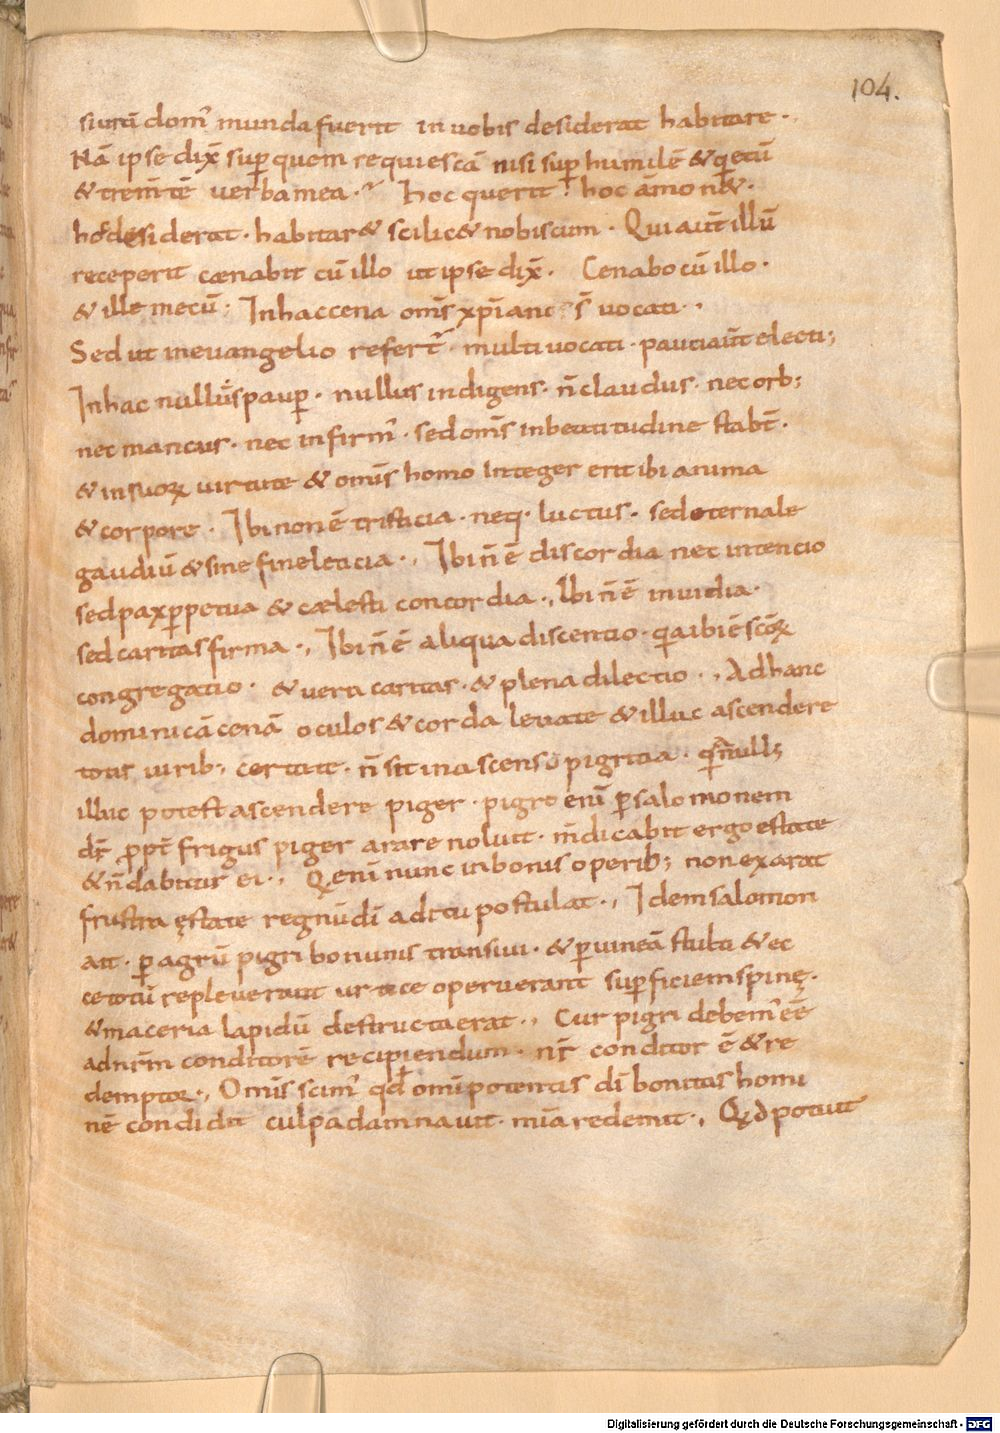 104.
siuṙū dom̄ mundafuerit in uobis desiderat habitare·
Nā ipse dix̄ sup̱ quem requiescā nisi sup̱ humilē & q̱etū
& trem̄tē uerba mea· hoc querit hoc ām̄onē&·
hoc desiderat· habitar& scilic& nobiscum· Qui aūt illū
receperit cænabit cū illo ut ipse dix̄· Cenabo cū illo·
& ille mecū· In hac cena om̄s xp̄iani s̄ uocati·,
Sed ut in euangelio refert̄· multi uocati· pauci aūt electi;
In hac nullus paup̱· nullus indigens· n̄ claudus· nec orb;
nec mancus· nec infirm̄· sed om̄s in beatitudine stabt̄·
& in suoꝝ uirtute & om̄s homo integer erit ibi anima
& corpore· Ibi non ē tristicia· neq· luctus· sed eternale
gaudiū & sine fine leticia·, Ibi n̄ ē discordia nec intencio
sed pax p̱petua & cælesti concordia·, Ibi n̄ ē inuidia·
sed caritas firma·, Ibi n̄ ē aliqua discentio· q̱a ibi ē sc̄oꝝ
congregatio· & uera caritas· & plena dilectio·, Ad hanc
dominicā cenā oculos & corda leuate & illuc ascendere
totis uirib; certate· n̄ sit in ascensu pigritia· qm̄ null;
illuc potest ascendere piger· pigro enī p̱ salomonem
dr̄ prop̱t frigus piger arare noluit· m̄dicabit ergo estate
& n̄ dabitur ei·, Q enī nunc in bonis operib; non exarat
frustra ęstate regnū dī adtcu postulat·, Idem salomon
ait· p̱ agrū pigri hominis transiui· & p̱ uineā stulti & ec
ce totū repleuerant urtice operuerant sup̱ficiem spinę·
& maceria lapidū destructa erat·, Cur pigri debem̄ ēē
ad nr̄m conditorē recipiendum· nr̄ conditor ē & re
demptor·, Om̄s scim̄ qd om̄ipotentis dī bonitas homi
nē condidit culpa damnauit· mīa redemit·, Qd potuit
Digitalisierung gefördert durch die Deutsche Forschungsgemeinschaft - DFG